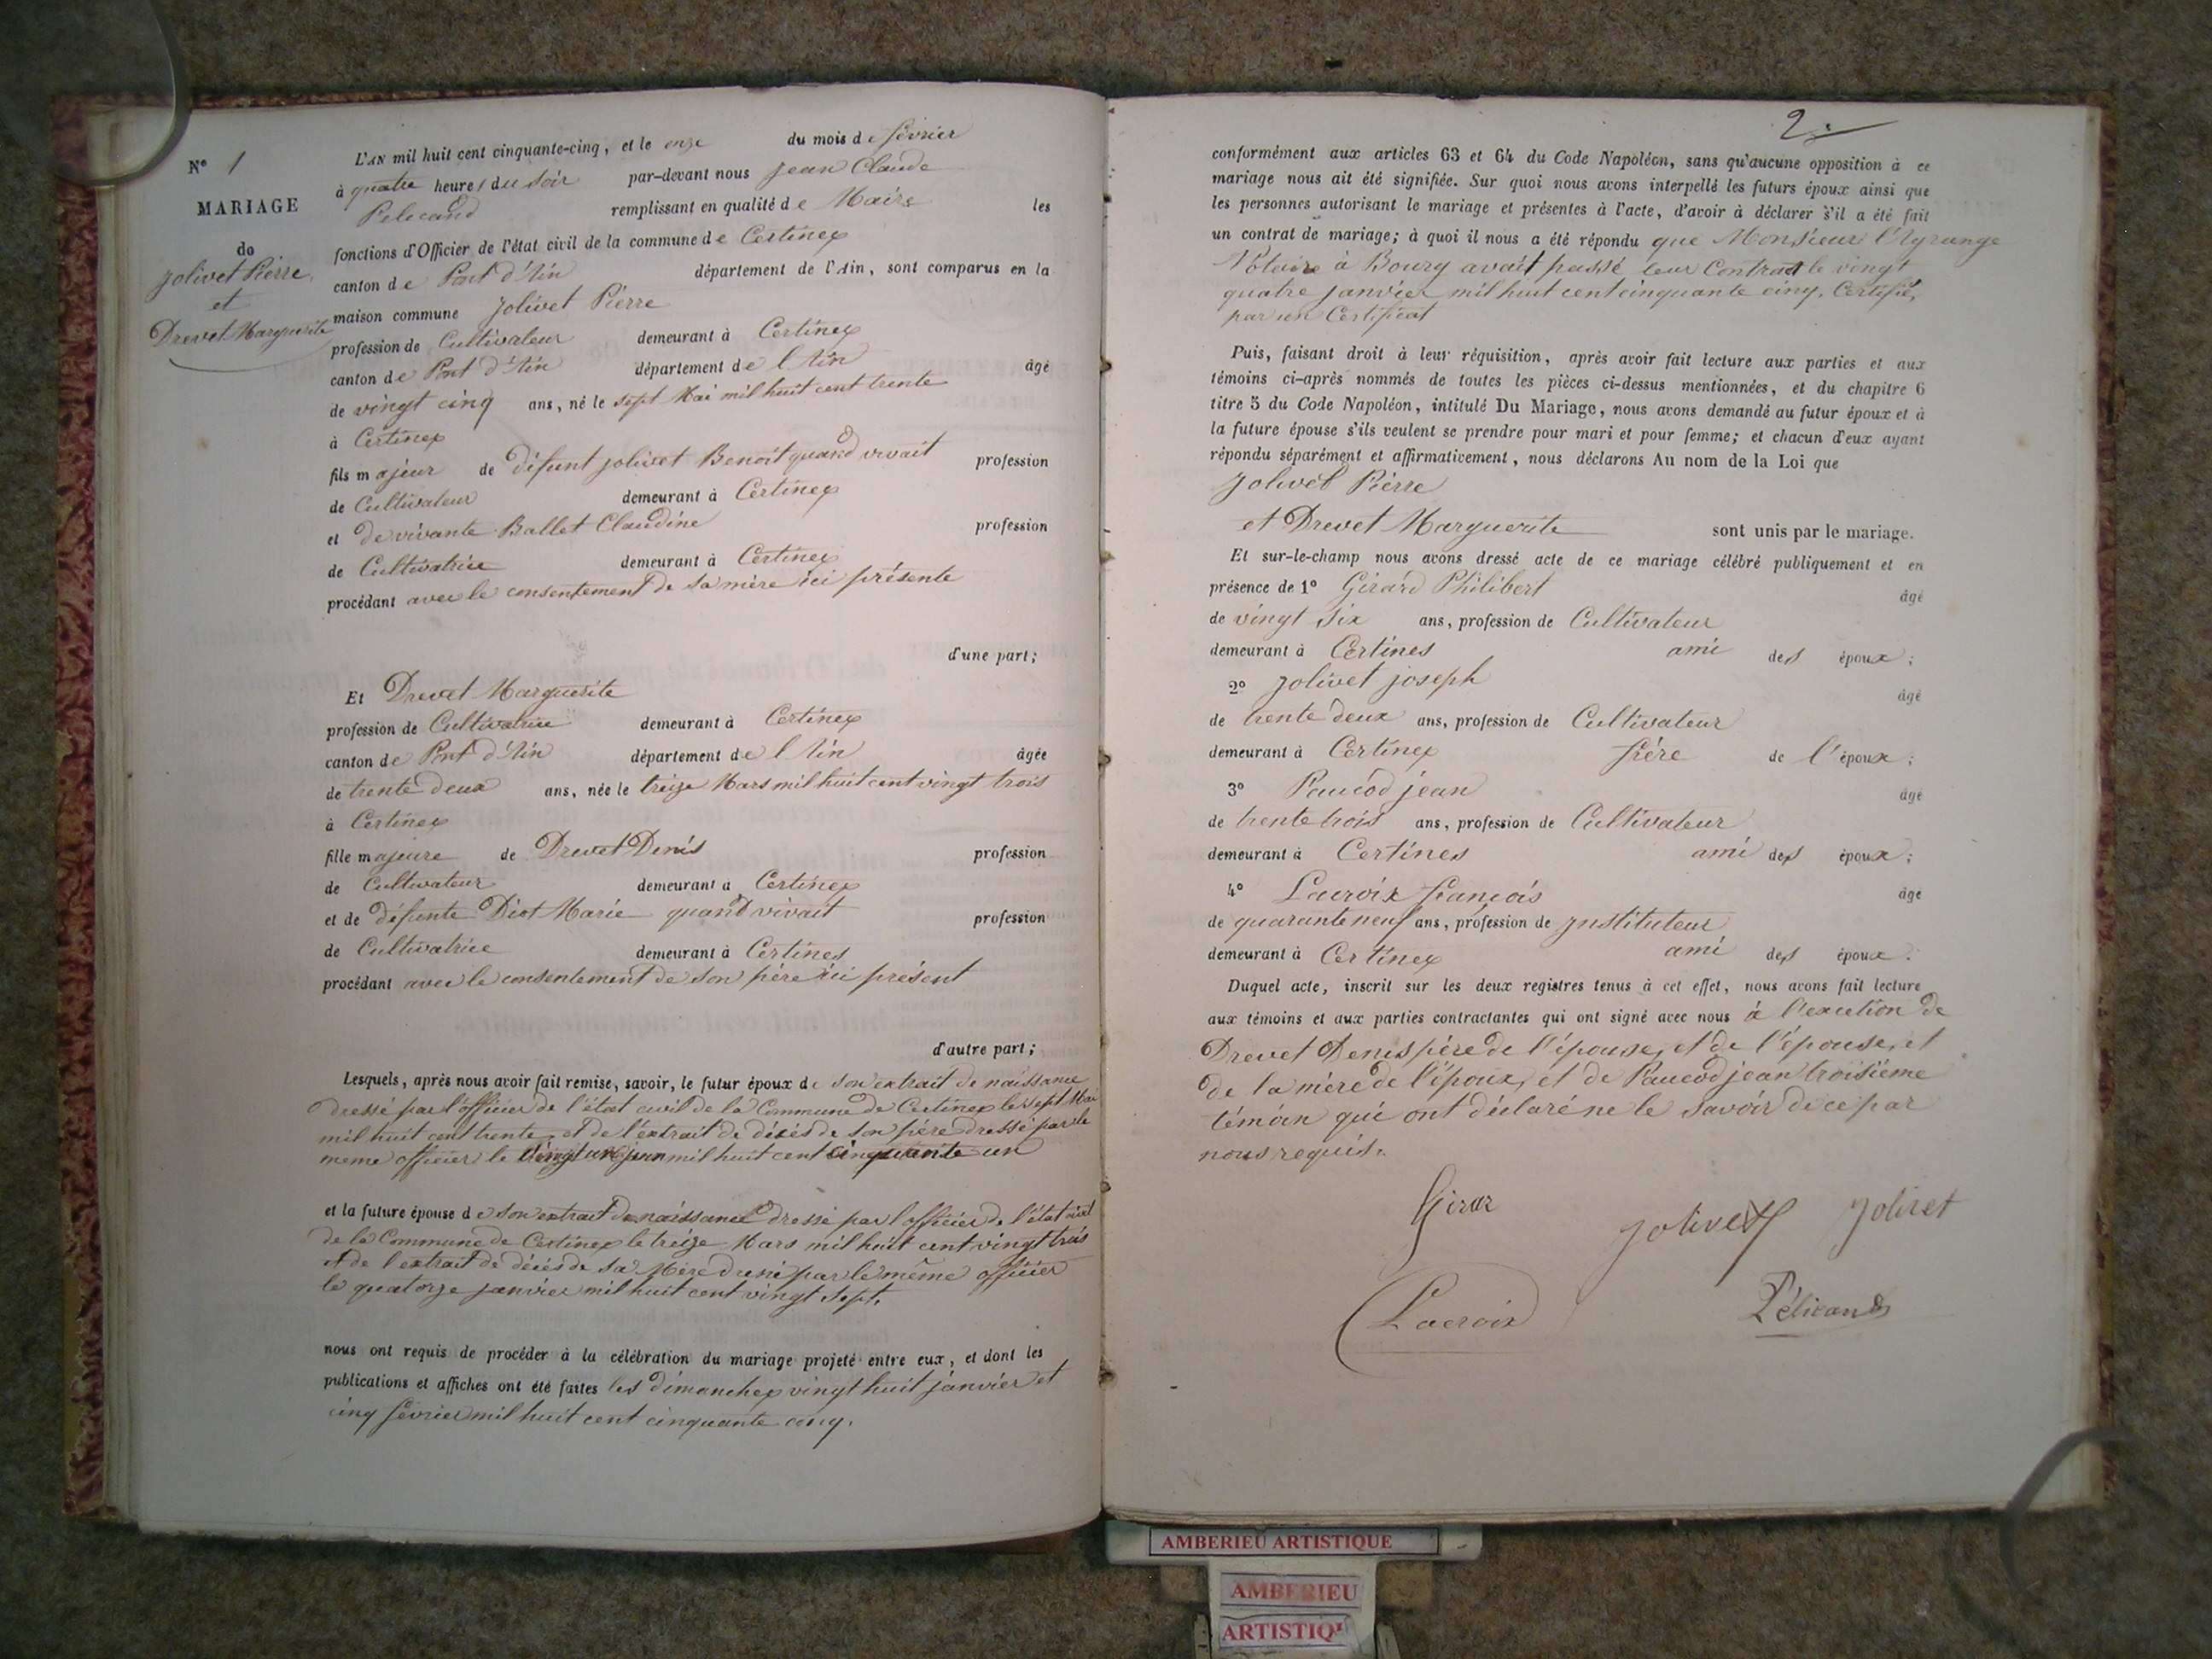 N° 1
MARIAGE
de
Jolivet Pierre
et
Drevet Marguerite
L'AN mil huit cent cinquante-cinq, et le onze du mois de février
à quatre heures du soir par-devant nous Jean Claude
Pelicand remplissant en qualité de Maire les
fonctions d'Officier de l'état civil de la commune de Certines
canton de Pont d'Ain département de l'Ain, sont comparus en la
maison commune Jolivet Pierre
profession de Cultivateur demeurant à Certines
canton de Pont d'Ain département de l'Ain âgé
de vingt cinq ans, né le sept Mai mil huit cent trente
à Certines
fils majeur de défunt jolivet Benoit quand vivait profession
de Cultivateur demeurant à Certines
et de vivante Ballet Claudine profession
de Cultivatrice demeurant à Certines
procédant avec le consentement de sa mère ici présente
d'une part;
Et Drevet Marguerite
profession de Cultivatrice demeurant à Certines
canton de Pont d'Ain département de l'Ain âgée
de trente deux ans, née le treize Mars mil huit cent vingt trois
à Certines
fille majeure de Drevet Denis profession
de Cultivateur demeurant à Certines
et de défunte Diot Marie quand vivait profession
de Cultivatrice demeurant à Certines
procédant avec le consentement de son père ici présent
d'autre part;
Lesquels, après nous avoir fait remise, savoir, le futur époux de son extrait de naissance
dressé par l'officier de l'état civil de la Commune de Certines le sept Mai
mil huit cent trente, et de l'extrait de décès de son père dressé par le
même officier le vingt un juin mil huit cent cinquante un
et la future épouse de son extrait de naissance dressé par l'officier de l'état civil
de la Commune de Certines le treize Mars mil huit cent vingt trois
et de l'extrait de décès de sa Mère dressé par le même officier
le quatorze janvier mil huit cent vingt sept.
nous ont requis de procéder à la célébration du mariage projeté entre eux, et dont les
publications et affiches ont été faites les dimanches vingt huit janvier et
cinq février mil huit cent cinquante cinq.
2
conformément aux articles 63 et 64 du Code Napoléon, sans qu'aucune opposition à ce
mariage nous ait été signifiée. Sur quoi nous avons interpellé les futurs époux ainsi que
les personnes autorisant le mariage et présentes à l'acte, d'avoir à déclarer s'il a été fait
un contrat de mariage; à quoi il nous a été répondu que Monsieur
Notaire à Bourg avait passé leur Contrat le vingt
quatre janvier mil huit cent cinquante cinq. Certifié,
par un Certificat
Puis, faisant droit à leur réquisition, après avoir fait lecture aux parties et aux
témoins ci-après nommés de toutes les pièces ci-dessus mentionnées, et du chapitre 6
titre 5 du Code Napoléon, intitulé Du Mariage, nous avons demandé au futur époux et à
la future épouse s'ils veulent se prendre pour mari et pour femme; et chacun d'eux ayant
répondu séparément et affirmativement, nous déclarons Au nom de la Loi que
Jolivet Pierre
et Drevet Marguerite sont unis par le mariage.
Et sur-le-champ nous avons dressé acte de ce mariage célébré publiquement et en
présence de 1° Girard Philibert âgé
de vingt six ans, profession de Cultivateur
demeurant à Certines ami des époux;
2° Jolivet joseph âgé
de trente deux ans, profession de Cultivateur
demeurant à Certines frère de l'époux;
3° Paucod jean âgé
de trente trois ans, profession de Cultivateur
demeurant à Certines ami des époux;
4° Lacroix françois âgé
de quarante neuf ans, profession de Instituteur
demeurant à Certines ami des époux.
Duquel acte, inscrit sur les deux registres tenus à cet effet, nous avons fait lecture
aux témoins et aux parties contractantes qui ont signé avec nous à l'exection de
Drevet Denis père de l'épouse, et de l'épouse, et
de la mère de l'époux, et de Paucod jean troisième
témoin qui ont déclaré ne le savoir de ce par
nous requis.
Girar Jolivet Jolivet
Lacroix Pélicand
AMBERIEU ARTISTIQUE
AMBERIEU
ARTISTIQ